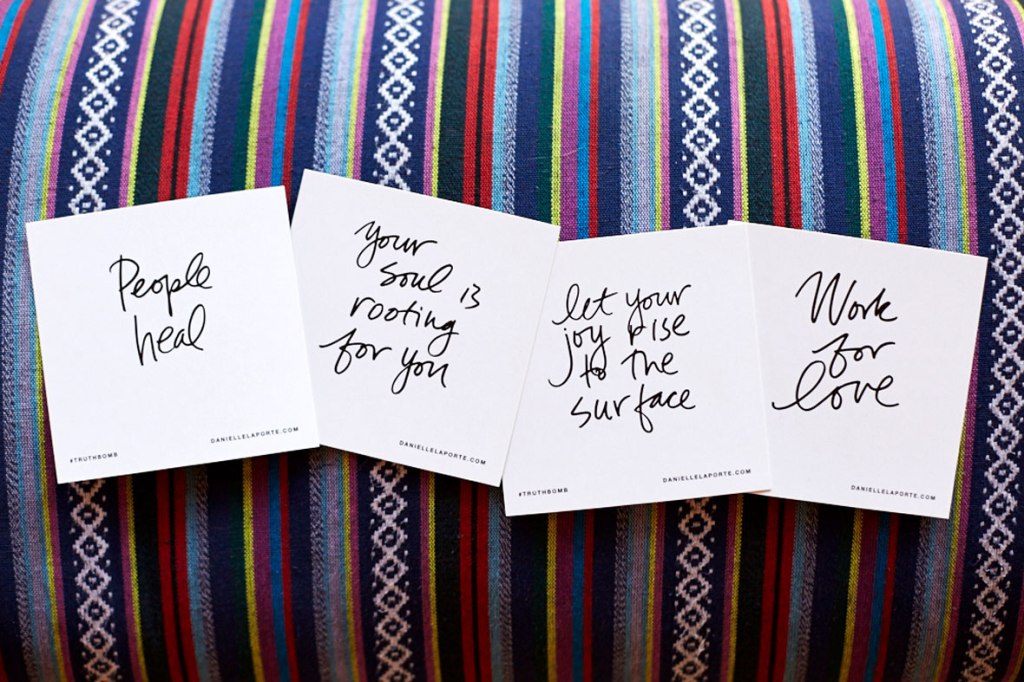 People
heal
#TRUTHBOMB
DANIELLELAPORTE.COM
your
soul is
rooting
for you
DANIELLELAPORTE.COM
let your
joy rise
to the
surface
#TRUTHBOMB
DANIELLELAPORTE.COM
Work
for
love
DANIELLELAPORTE.COM